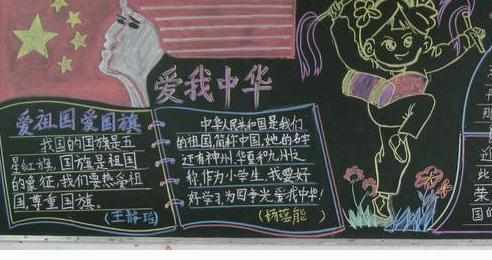 爱我中华
爱祖国爱国旗
我国的国旗是五
星红旗,国旗是祖国
的象征,我们要热爱祖
国,尊重国旗。
中华人民共和国是我们
的祖国简称中国,她的名字
还有神州、华夏和九州
称,作为小学生,我要好
好学习为国争光爱我中华!